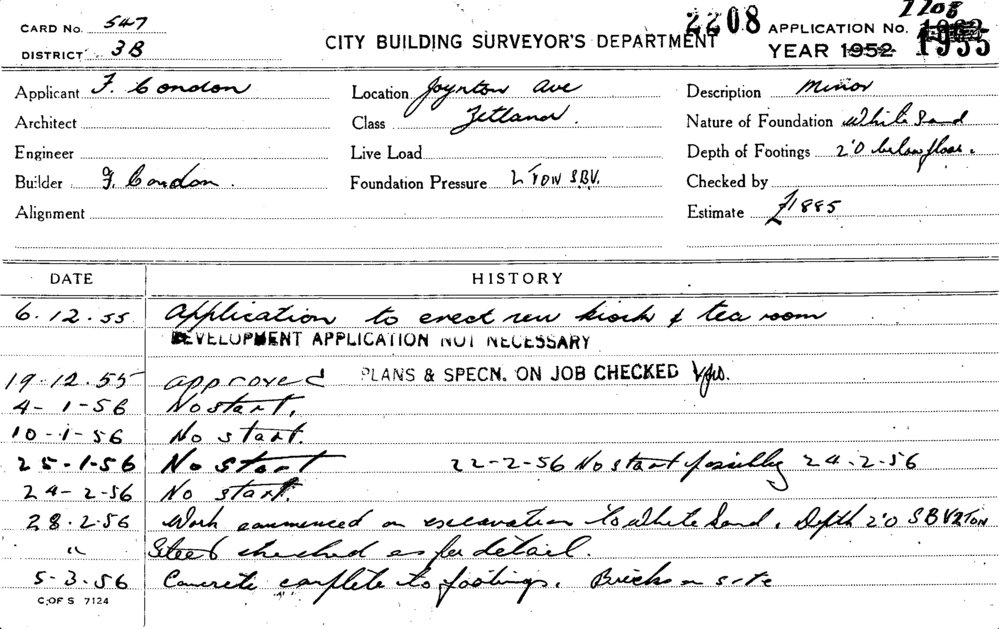 CARD No. 547
DISTRICT 3B
CITY BUILDING SURVEYOR'S DEPARTMENT
2208
APPLICATION No. 2208
YEAR 1952 1955
Applicant F. Condon
Location Joynton Ave
Description Minor
Architect
Class Zetland.
Nature of Foundation White Sand
Engineer
Live Load
Depth of Footings 2'0 below floor.
Builder F. Condon.
Foundation Pressure 2 TON S.B.V.
Checked by
Alignment
Estimate £1885
DATE HISTORY
6.12.55 Application to erect new kiosk & tea room
DEVELOPMENT APPLICATION NOT NECESSARY
19.12.55 approved PLANS & SPECN. ON JOB CHECKED
4-1-56 No start.
10-1-56 No start.
25-1-56 No start 22-2-56 No start possibly 24-2-56
24-2-56 No start.
28.2.56 Work commenced on excavation to White Sand. Depth 2'0 SBV 2 TON
" Steel checked as per detail.
5-3.56 Concrete complete to footings. Bricks on site
C. OF S 7124